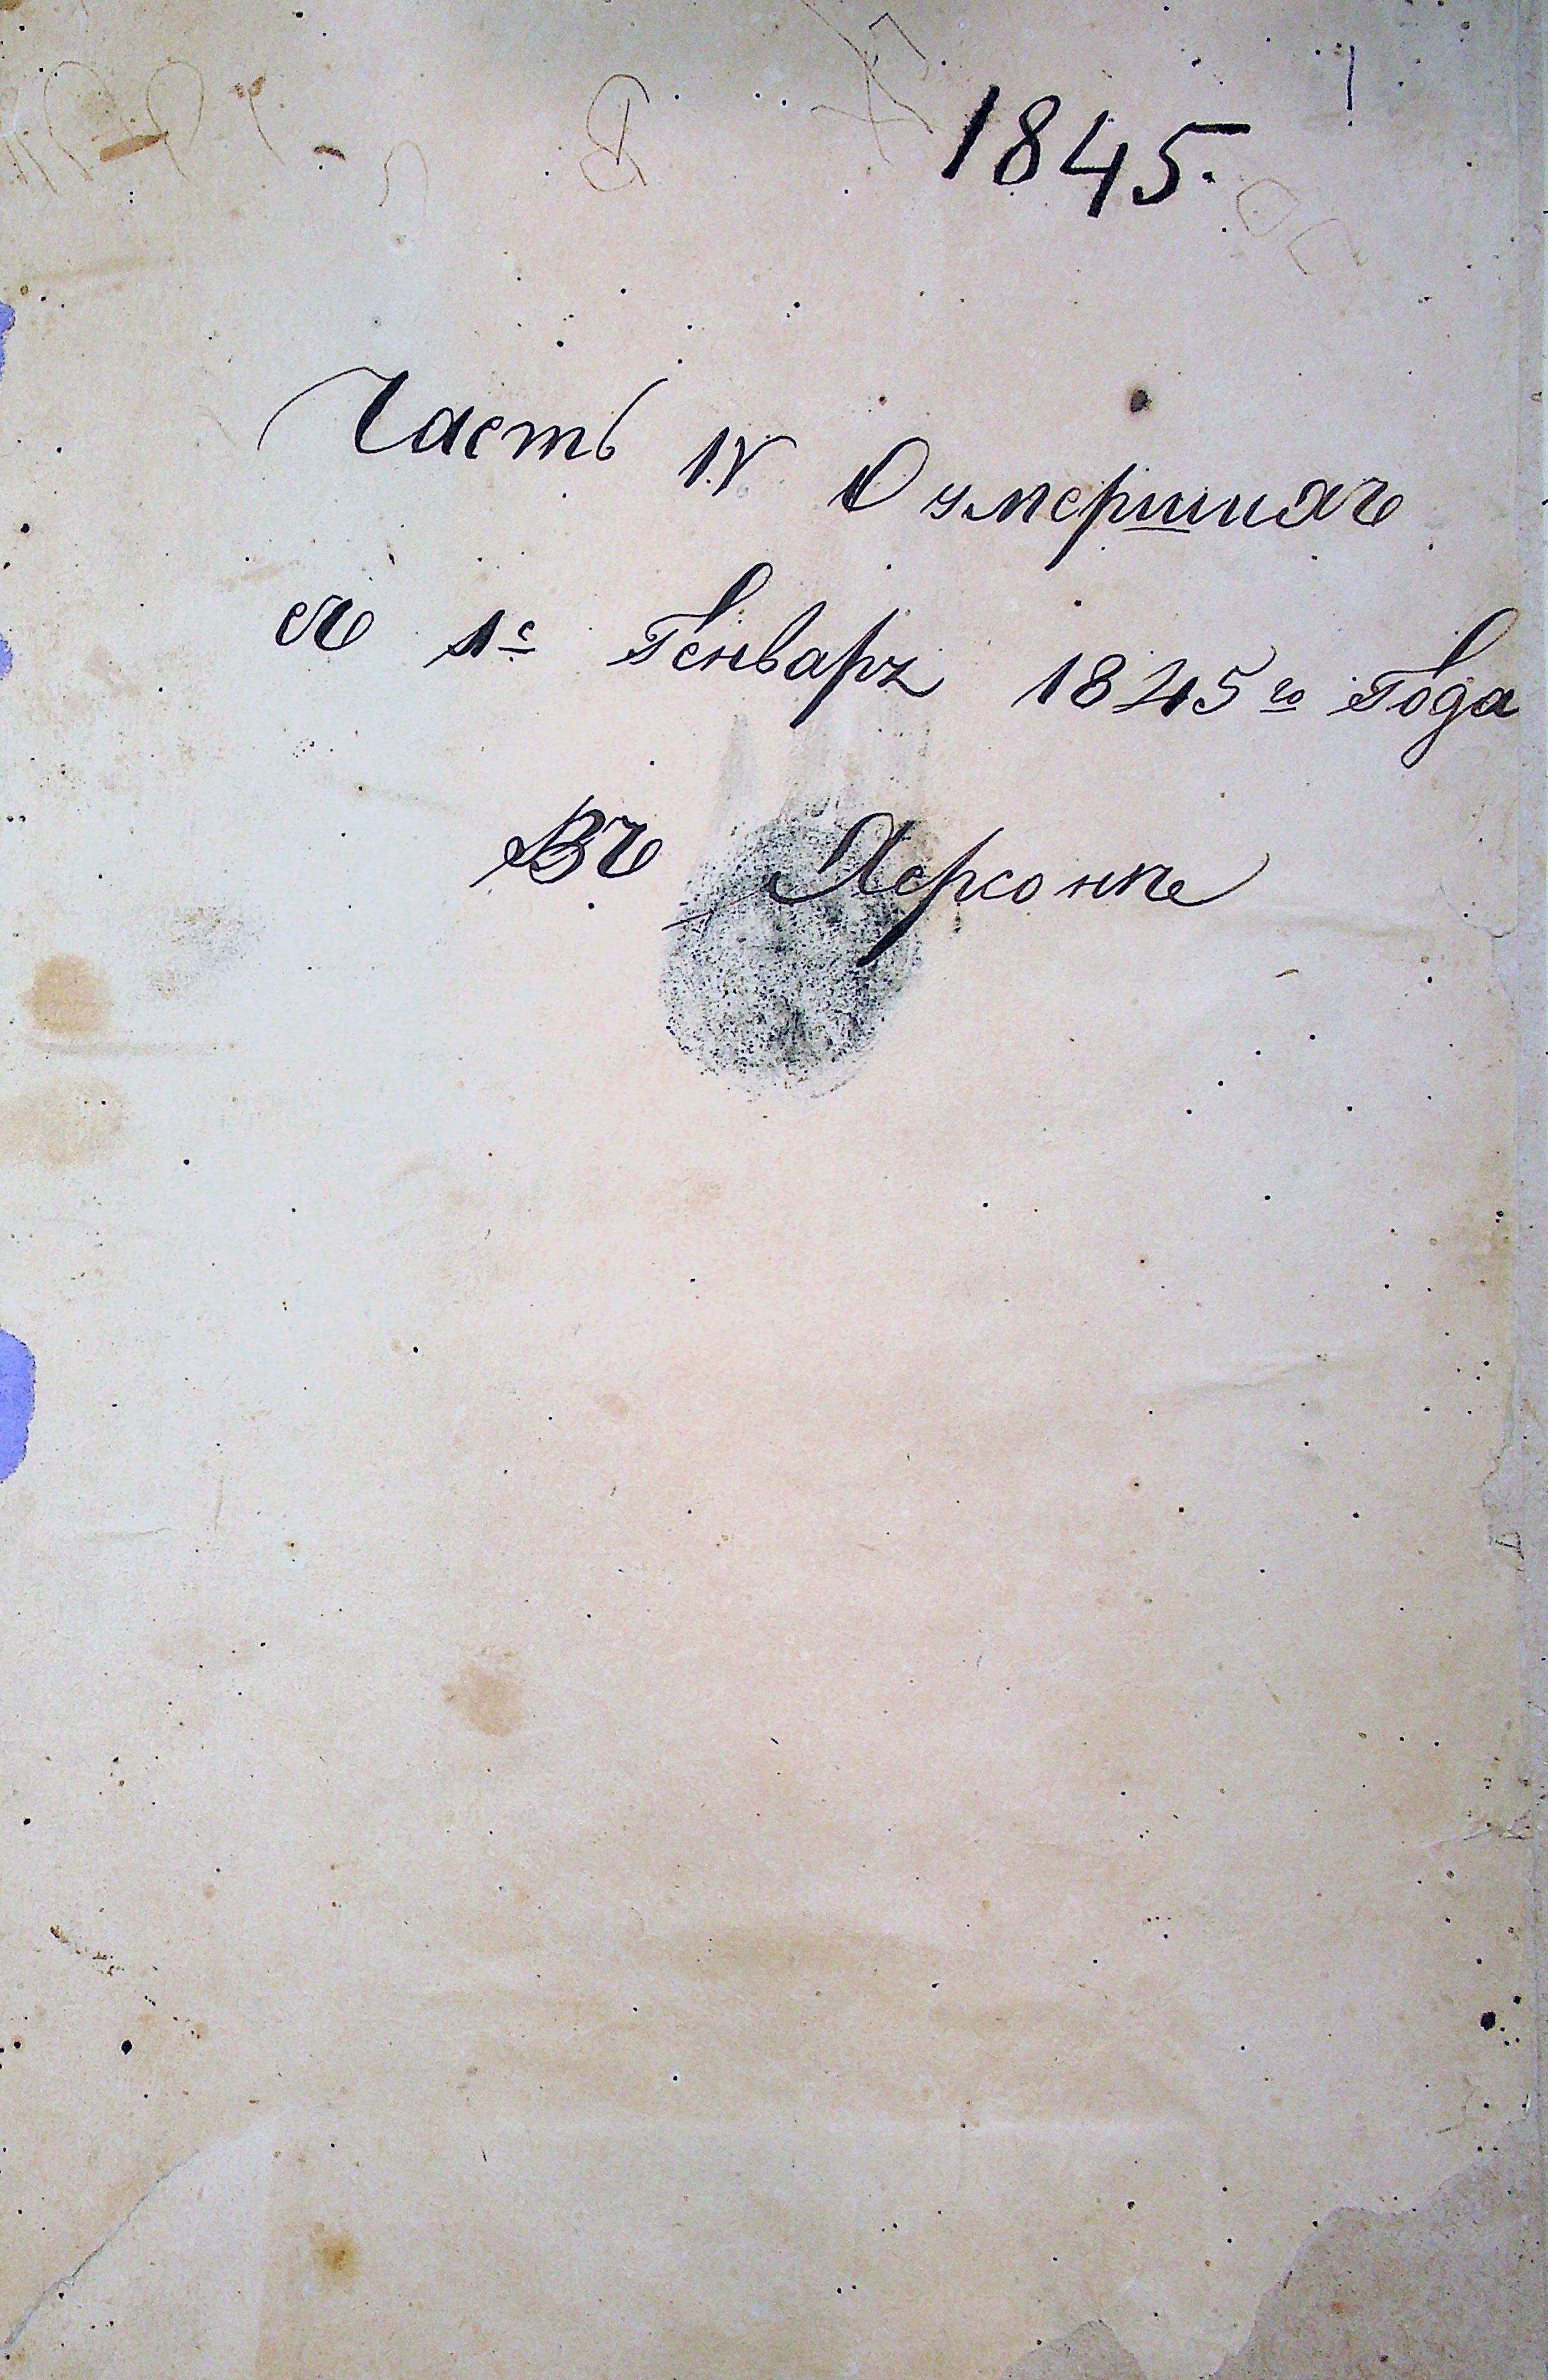 1845.
Часть IV О умершихъ
съ 1е Генваря 1845го Года
Въ Херсоне